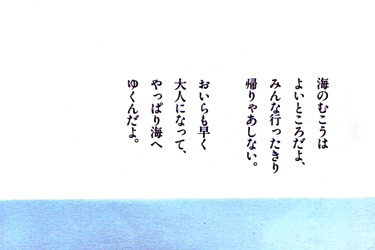 海のむこうは
よいところだよ、
みんな行ったきり
帰りゃあしない。
おいらも早く
大人になって、
やっぱり海へ
ゆくんだよ。